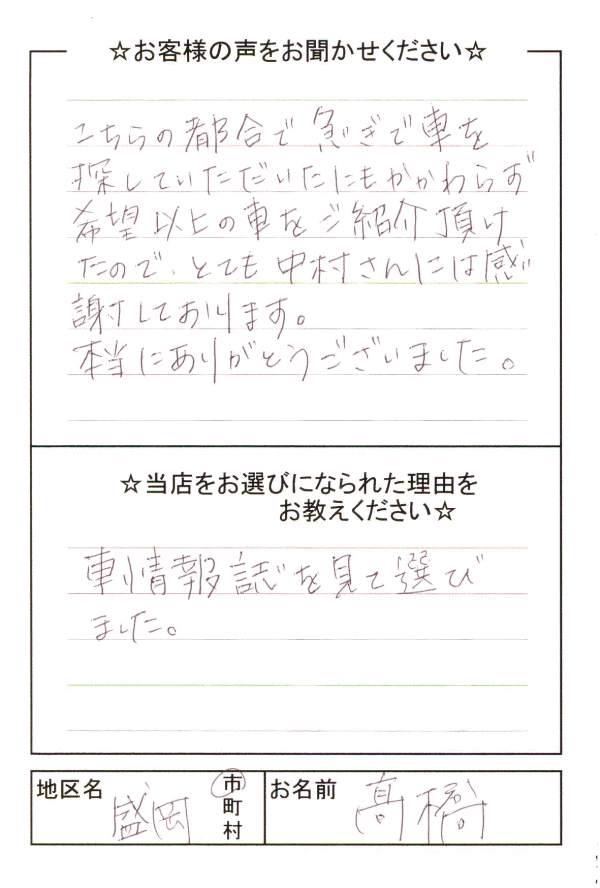 ☆お客様の声をお聞かせください☆
こちらの都合で急ぎで車を
探していただいたにもかかわらず
希望以上の車をご紹介頂け
たので、とても中村さんには感
謝しております。
本当にありがとうございました。
☆当店をお選びになられた理由を
お教えください☆
車情報誌を見て選び
ました。
地区名 盛岡 市町村
お名前 髙橋